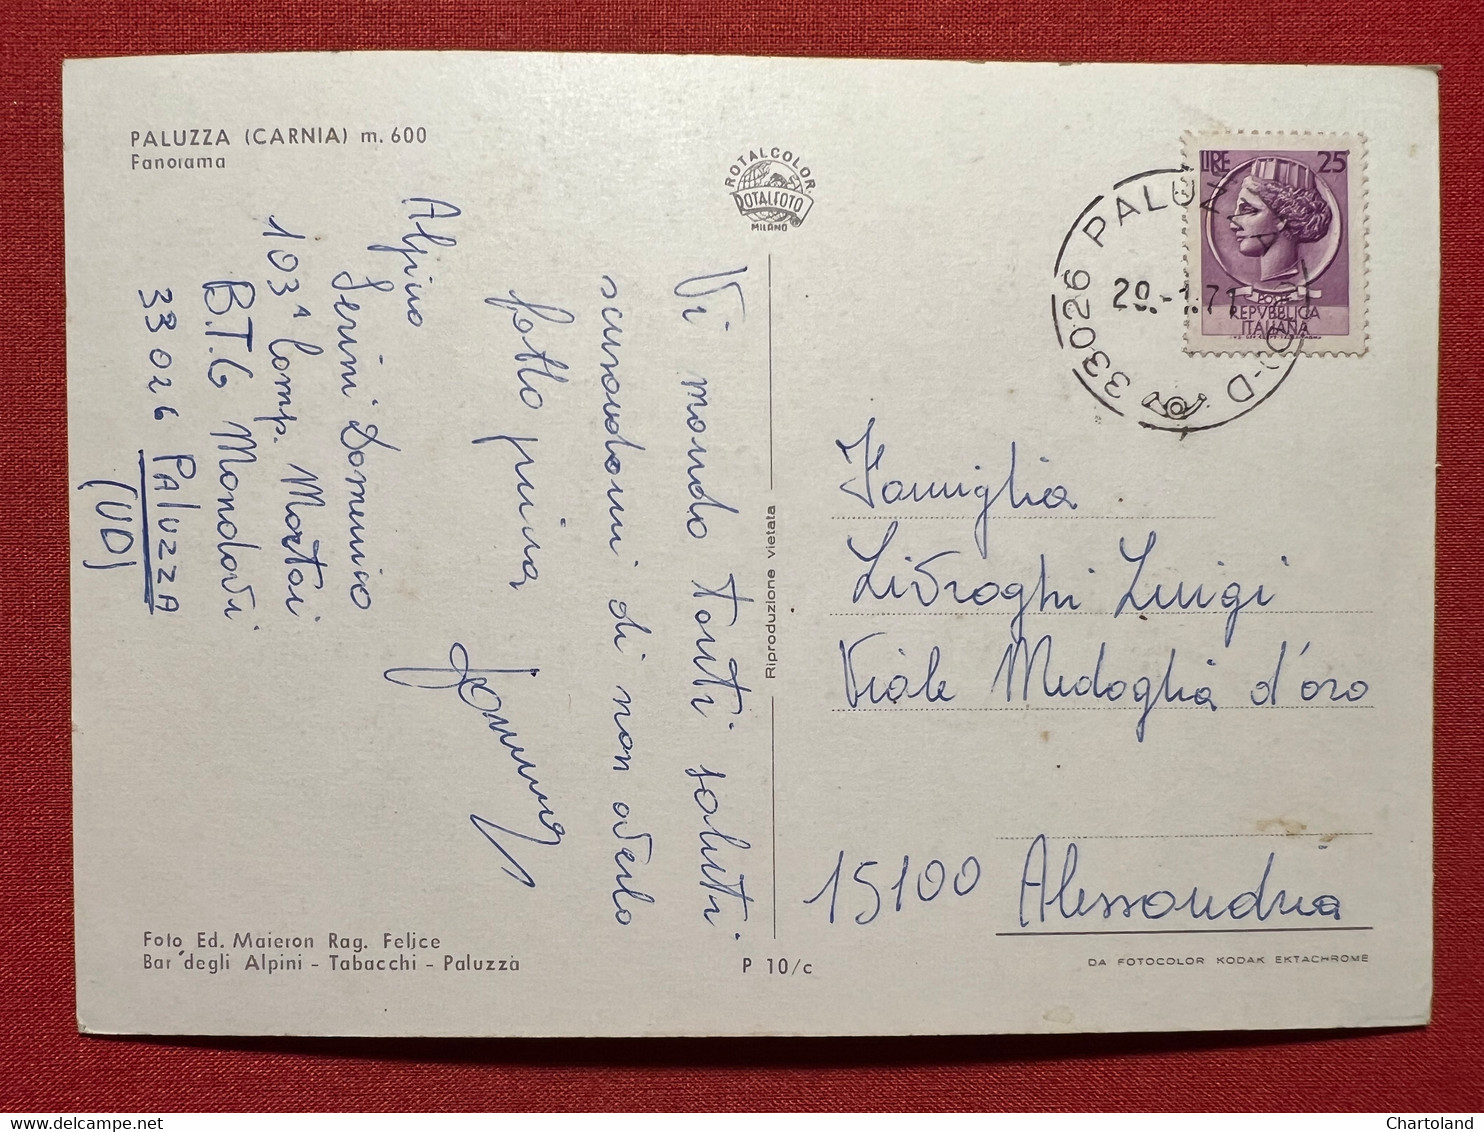 PALUZZA (CARNIA) m. 600
Panorama
Alpino
Gerini Domenico
103ª Comp. Mortai
B.T.G Mondovì
33026 Paluzza
(UD)
Vi mando tanti saluti
scusandomi di non averlo
fatto prima
ROTALCOLOR
ROTALFOTO
MILANO
Riproduzione vietata
LIRE 25
POSTE
REPVBBLICA
ITALIANA
33026 PALUZZA
20.-1.71
Famiglia
Livraghi Luigi
Viale Medaglia d'oro
15100 Alessandria
Foto Ed. Maieron Rag. Felice
Bar degli Alpini - Tabacchi - Paluzza
P 10/c
DA FOTOCOLOR KODAK EKTACHROME
Chartoland